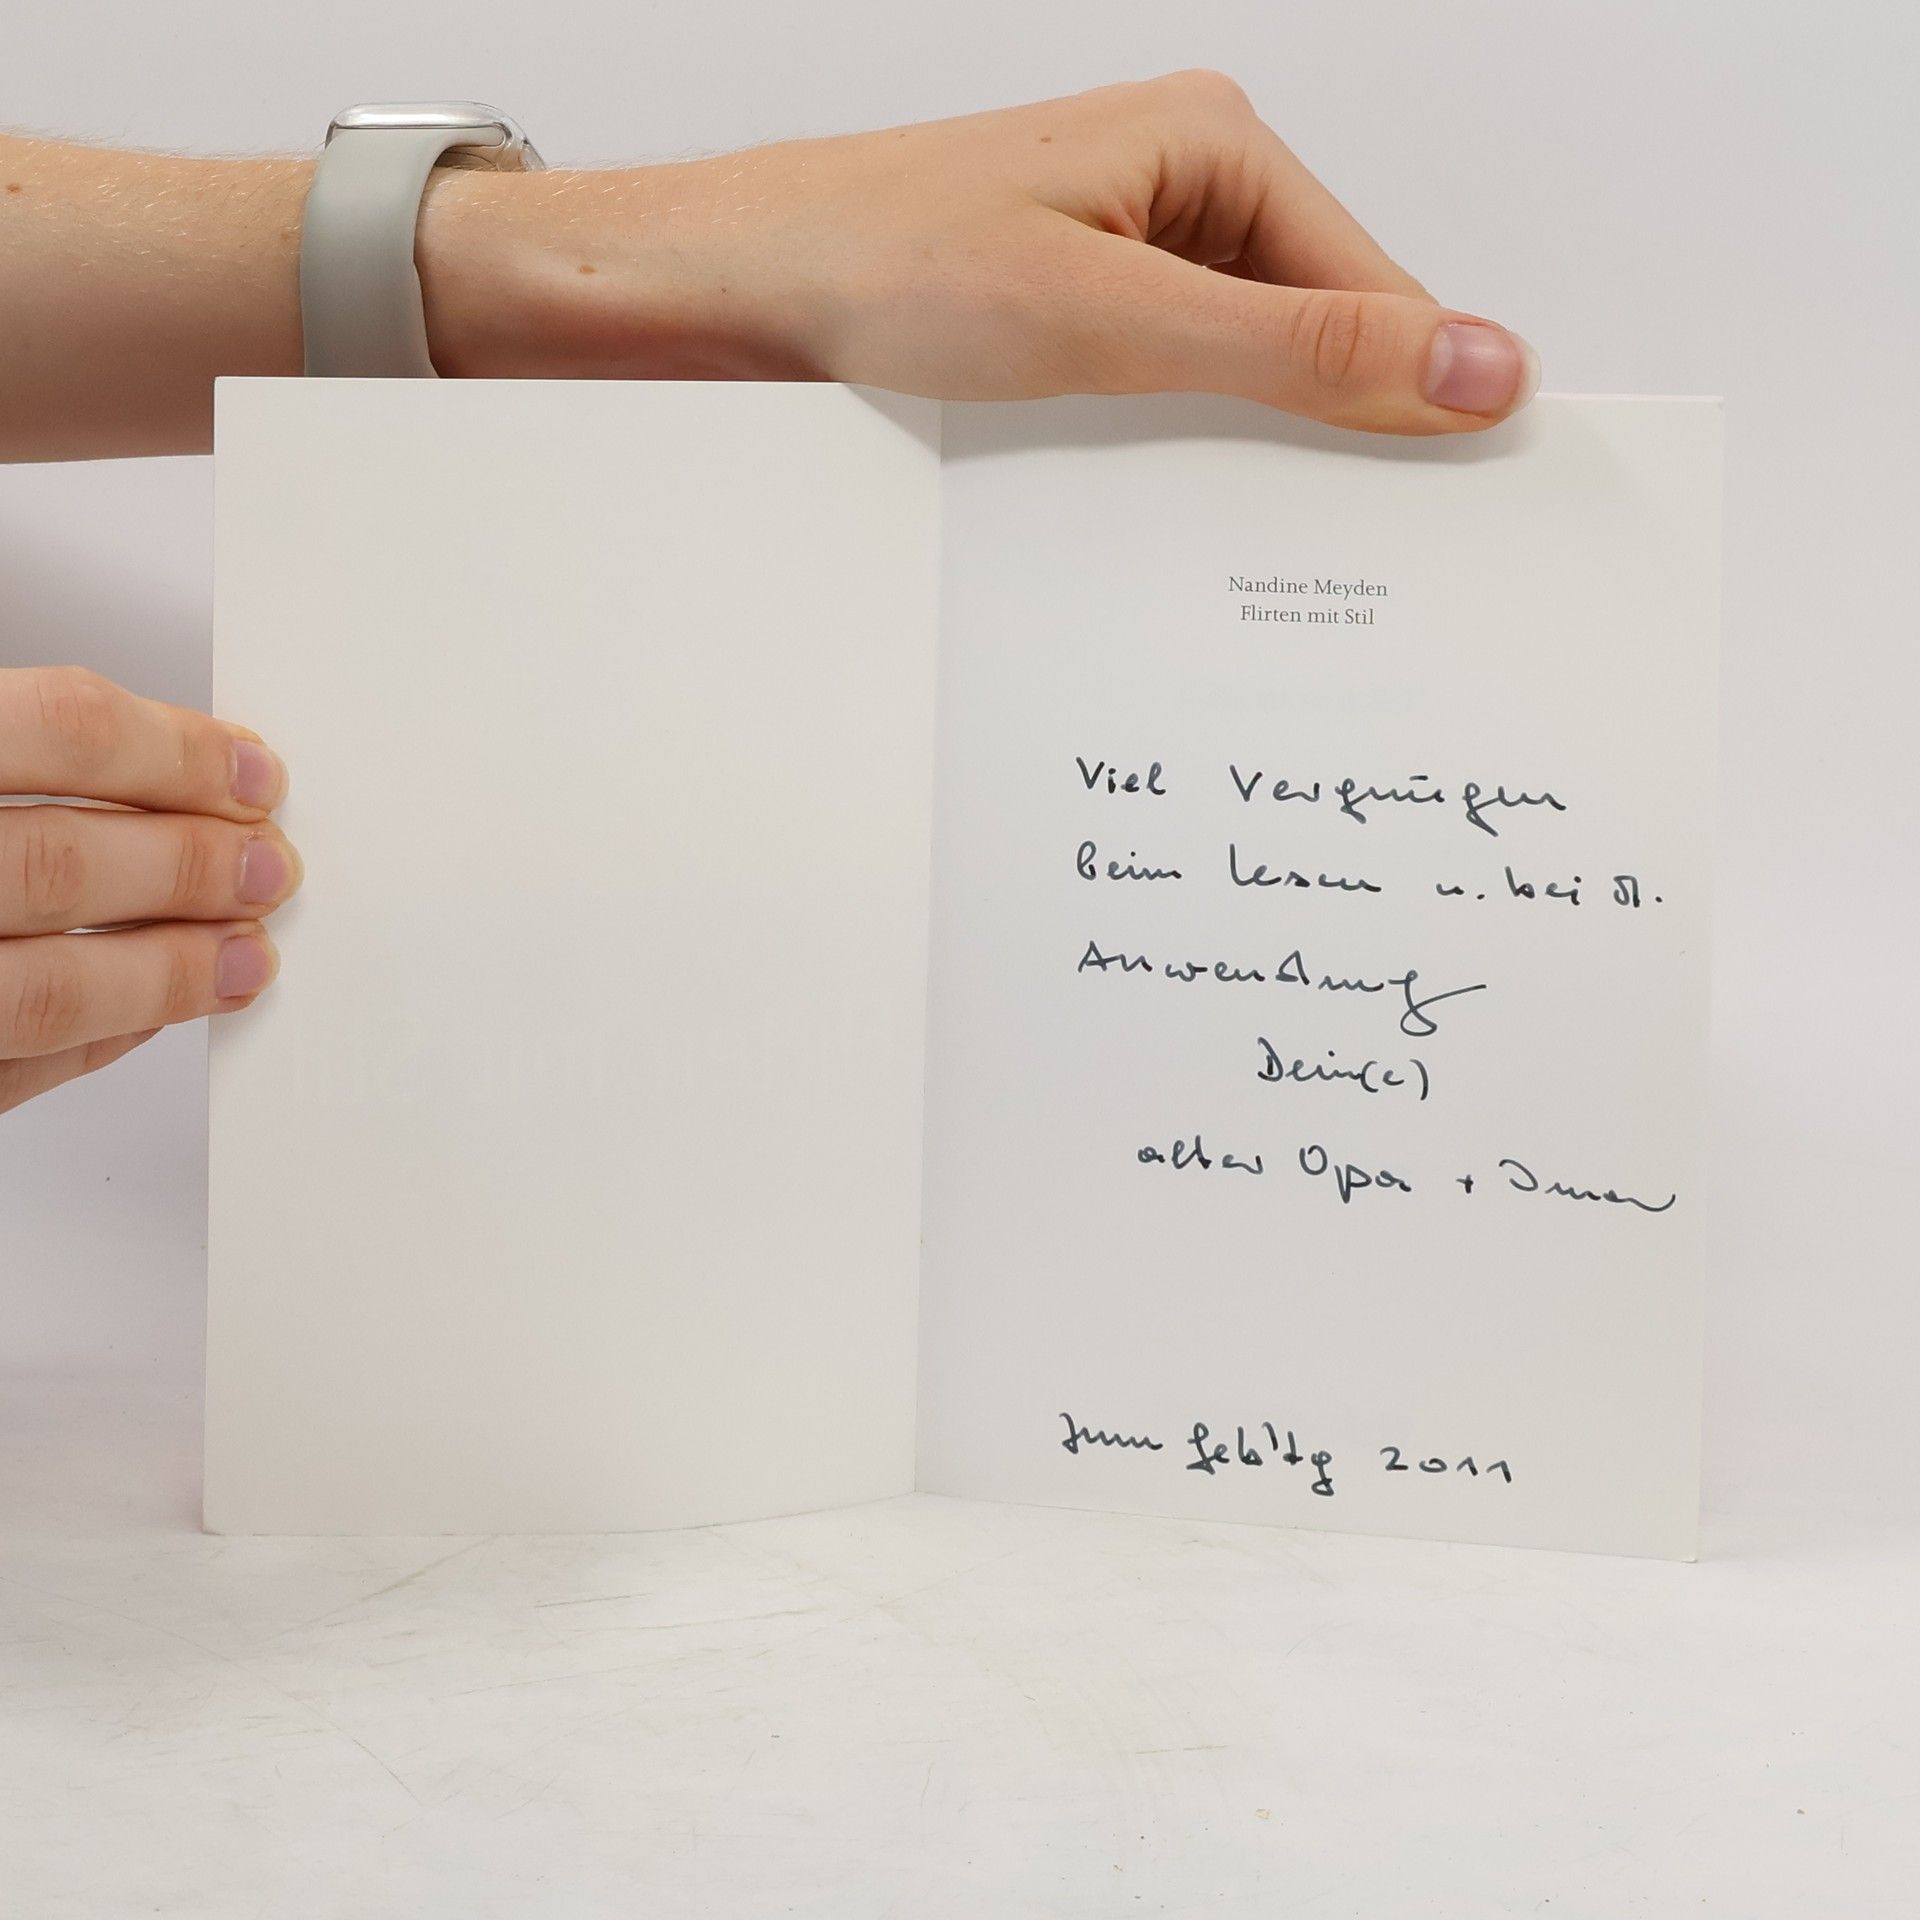 Nandine Meyden
Flirten mit Stil
Viel Vergnügen
beim Lesen u. bei d.
Anwendung
Dein(e)
alter Opa +
zum Geb'tg 2011